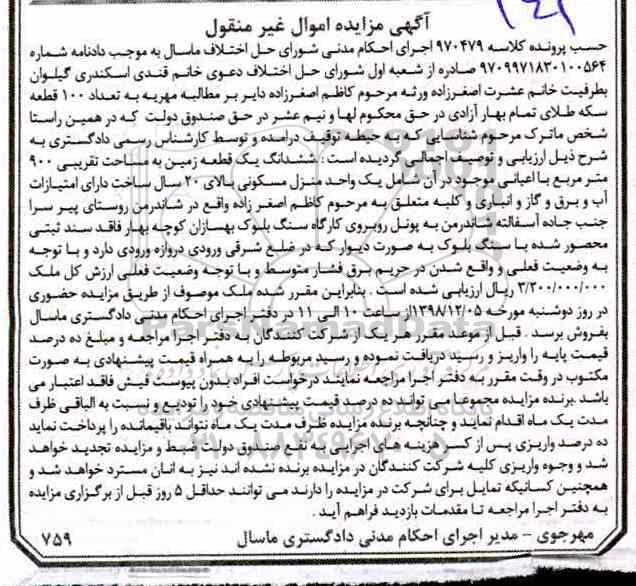 آگهی مزایده اموال غیر منقول
حسب پرونده کلاسه ۹۷۰۴۷۹ اجرای احکام مدنی شورای حل اختلاف ماسال به موجب دادنامه شماره
۹۷۰۹۹۷۱۸۳۰۱۰۰۵۶۴ صادره از شعبه اول شورای حل اختلاف دعوی خانم قندی اسکندری گیلوان
بطرفیت خانم عشرت اصغرزاده ورثه مرحوم کاظم اصغرزاده دایر بر مطالبه مهریه به تعداد ۱۰۰ قطعه
سکه طلای تمام بهار آزادی در حق محکوم لها و نیم عشر در حق صندوق دولت که در همین راستا
شخص ماترک مرحوم شناسایی که به حیطه توقیف درامده و توسط کارشناس رسمی دادگستری به
شرح ذیل ارزیابی و توصیف اجمالی گردیده است : ششدانگ یک قطعه زمین به مساحت تقریبی ۹۰۰
متر مربع با اعیانی موجود در آن شامل یک واحد منزل مسکونی بالای ۲۰ سال ساخت دارای امتیازات
آب و برق و گاز و انباری و کلبه متعلق به مرحوم کاظم اصغر زاده واقع در شاندرمن روستای پیر سرا
جنب جاده آسفالته شاندرمن به پونل روبروی کارگاه سنگ بلوک بهسازان کوچه بهار فاقد سند ثبتی
محصور شده با سنگ بلوک به صورت دیوار که در ضلع شرقی ورودی دروازه ورودی دارد و با توجه
به وضعیت فعلی و واقع شدن در حریم برق فشار متوسط و با توجه وضعیت فعلی ارزش کل ملک
۳/۲۰۰/۰۰۰/۰۰۰ ریال ارزیابی شده است . بنابراین مقرر شده ملک موصوف از طریق مزایده حضوری
در روز دوشنبه مورخه ۱۳۹۸/۱۲/۰۵ از ساعت ۱۰ الی ۱۱ در دفتر اجرای احکام مدنی دادگستری ماسال
بفروش برسد . قبل از موعد مقرر هر یک از شرکت کنندگان به دفتر اجرا مراجعه و مبلغ ده درصد
قیمت پایه را واریز و رسید دریافت نموده و رسید مربوطه را به همراه قیمت پیشنهادی به صورت
مکتوب در وقت مقرر به دفتر اجرا مراجعه نمایند درخواست افراد بدون پیوست فیش فاقد اعتبار می
باشد .برنده مزایده مجموعا می تواند ده درصد قیمت پیشنهادی خود را تودیع و نسبت به الباقی ظرف
مدت یک ماه اقدام نماید و چنانچه برنده مزایده ظرف مدت یک ماه نتواند باقیمانده را پرداخت نماید
ده درصد واریزی پس از کسر هزینه های اجرایی به نفع صندوق دولت ضبط و مزایده تجدید خواهد
شد و وجوه واریزی کلیه شرکت کنندگان در مزایده برنده نشده اند نیز به انان مسترد خواهد شد و
همچنین کسانیکه تمایل برای شرکت در مزایده را دارند می توانند حداقل ۵ روز قبل از برگزاری مزایده
به دفتر اجرا مراجعه تا مقدمات بازدید فراهم آید .
مهرجوی - مدیر اجرای احکام مدنی دادگستری ماسال
۷۵۹
ParsNamadData
۰۲۱-۸۸۳۴۹۶۷۰-۵